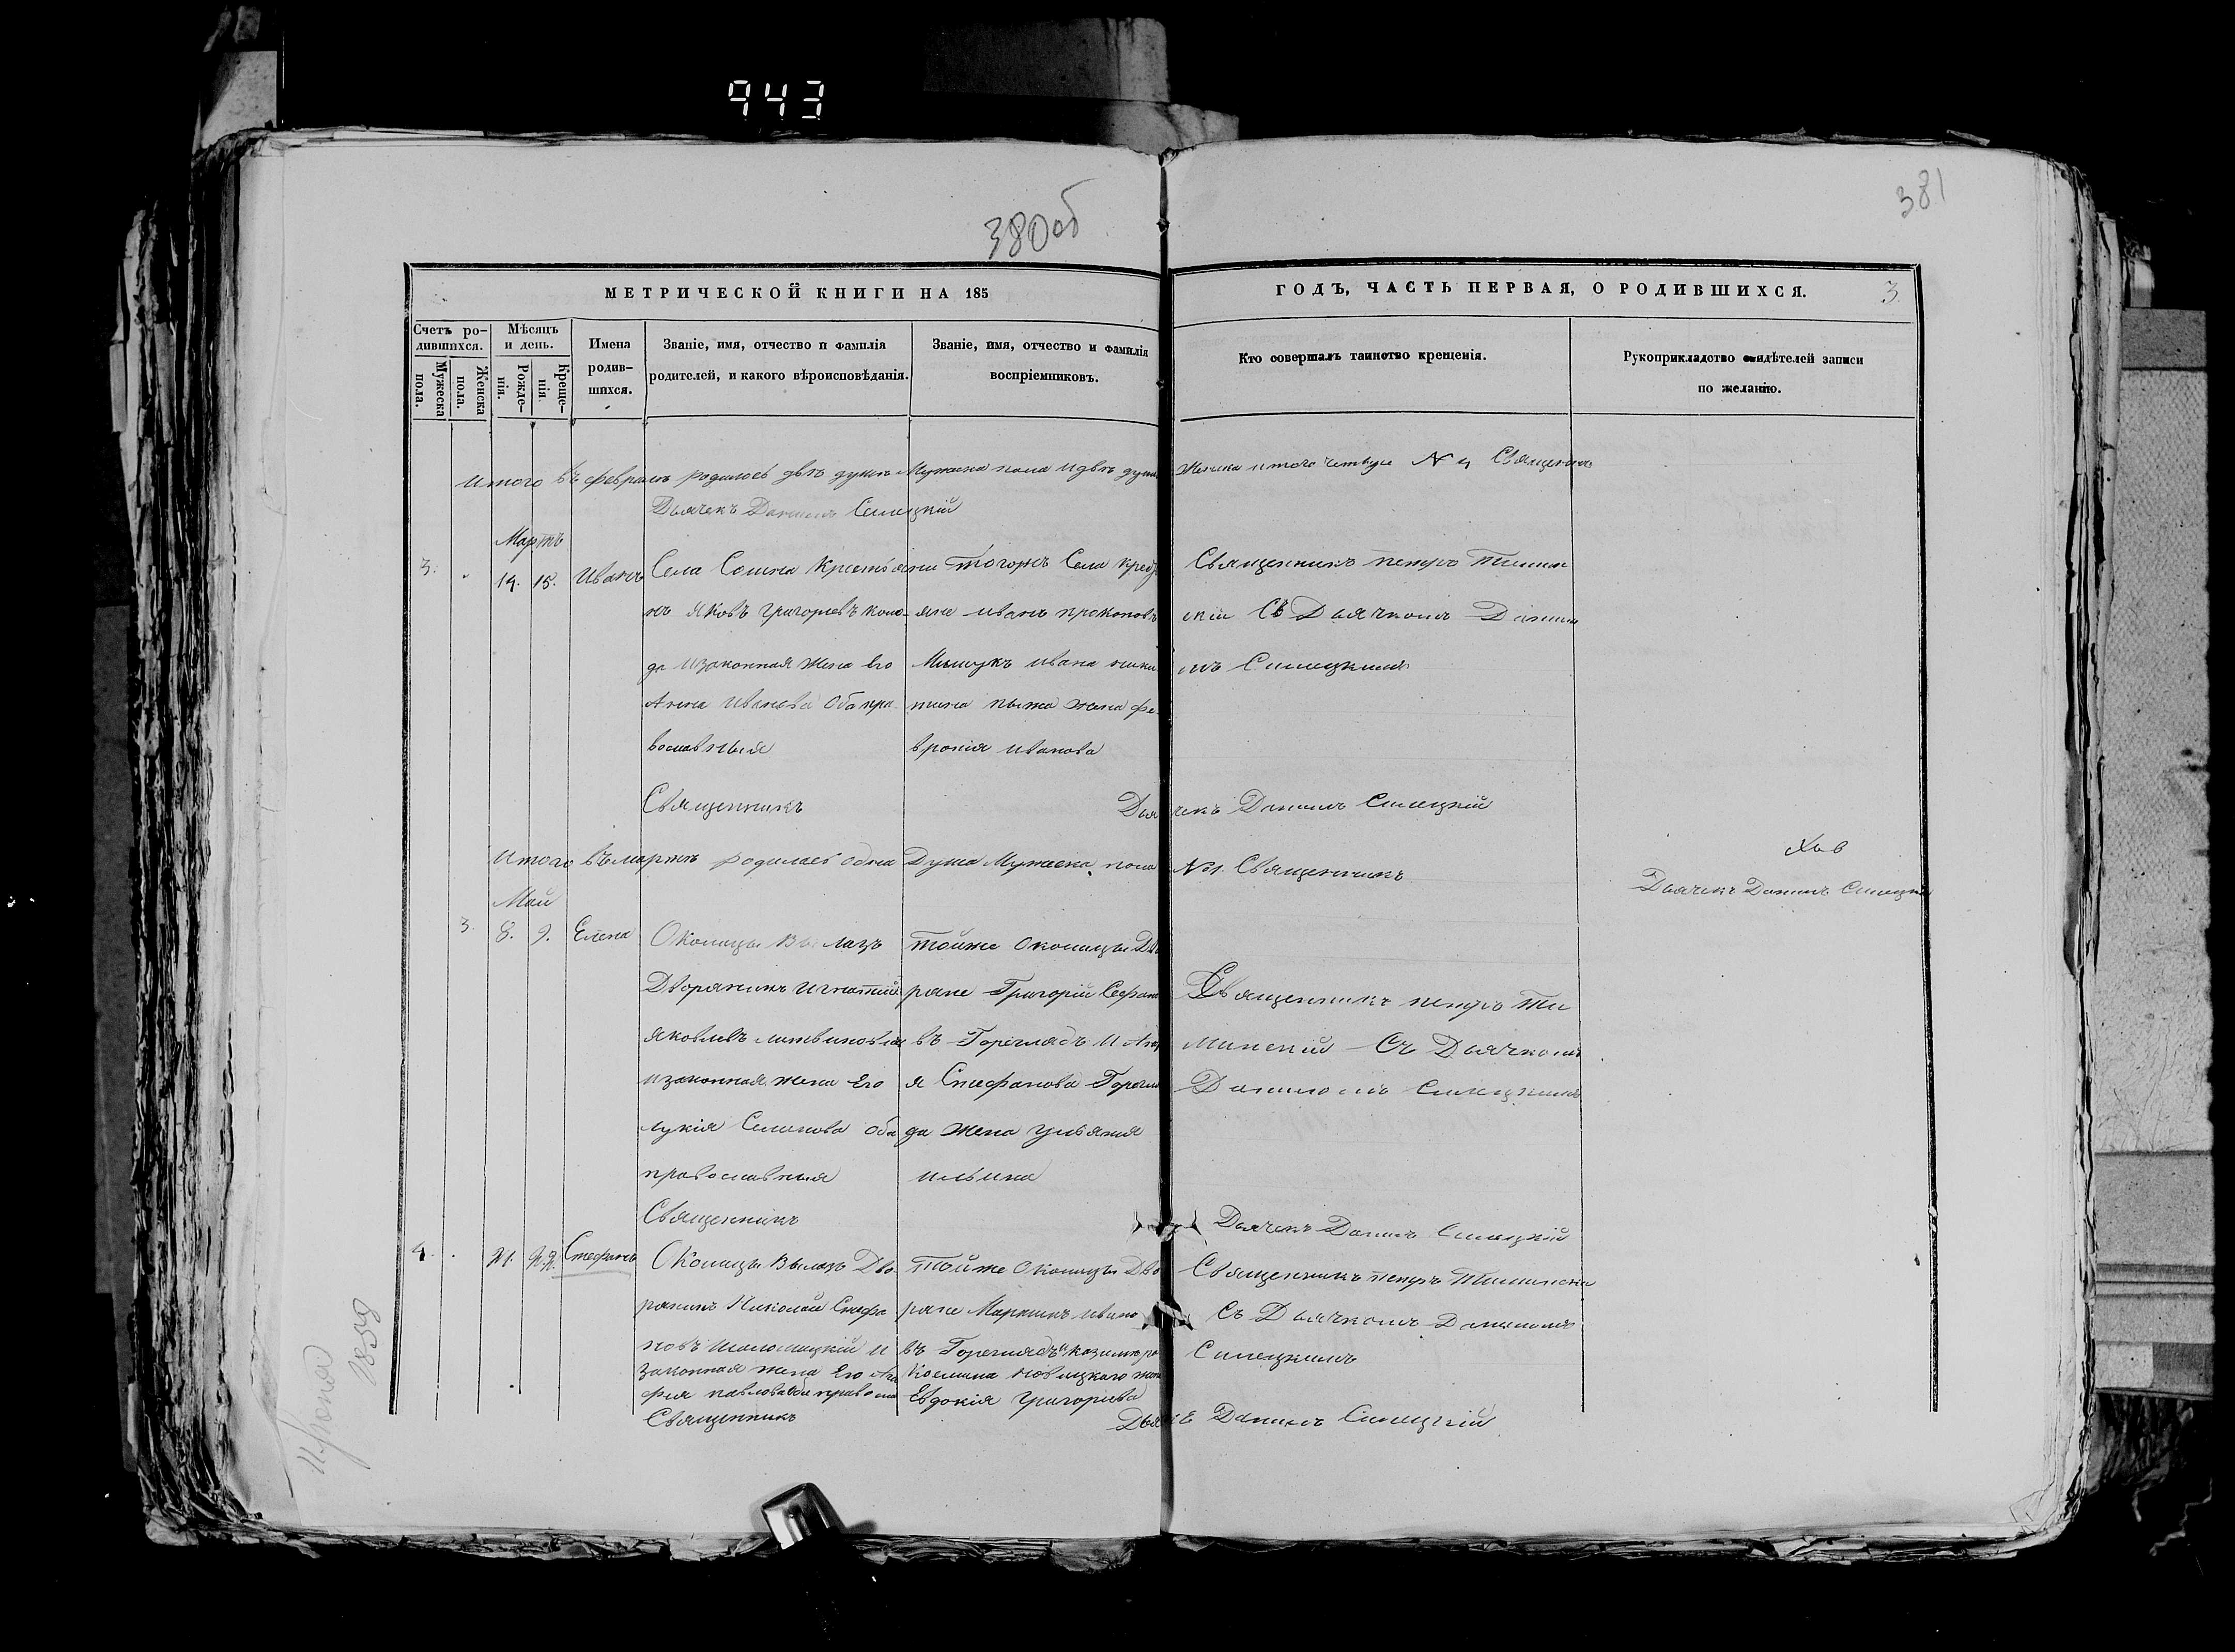 943
380об
381
МЕТРИЧЕСКОЙ КНИГИ НА 185
ГОДЪ, ЧАСТЬ ПЕРВАЯ, О РОДИВШИХСЯ.
3
Счетъ ро-
дившихся.
Мужеска
пола.
Женска
пола.
Мѣсяцъ
и день.
Рожде-
нія.
Креще-
нія
Имена
родив-
шихся.
Званіе, имя, отчество и фамилія
родителей, и какого вѣроисповѣданія.
Званіе, имя, отчество и фамилія
воспріемниковъ.
Кто совершалъ таинство крещенія.
Рукоприкладство свидѣтелей записи
по желанію.
Итого въ февралѣ родилось двѣ души Мужеска пола и двѣ души Женска итого четыре N 4 Священникъ
Дьячекъ Данилъ Синецкій
Мартъ
3.
14. 15. Иванъ
Села Крестьяни
нъ Яковъ Григорьевъ Коло-
да Изаконная Жена Его
Анна Иванова Оба пра-
вославныя
Тогожъ Села
яне Иванъ Прокоповъ
Ивана
жена Фе-
вронія Иванова
Священникъ Петръ Тимин
скій Съ Дьячкомъ Данил
мъ Синецкимъ
Священникъ
Дьячекъ Данилъ Синецкій
Итого въ мартѣ родилась одна Душа Мужеска пола N 1. Священникъ
Дьячекъ Данилъ Синецкій
Май
3.
8. 9. Елена
Околицы Вылазъ
Дворянинъ Игнатій
Яковлевъ Литвиновъ
изаконная жена Его
Лукія Семенова Оба
православныя
Тойже Околицы Дво
ряне Григорій Стефано
въ Гореглядъ И
я Стефанова Горегля
да Жена Ульяния
Ильина
Священникъ Петръ Ти
минскій Съ Дьячкомъ
Даниломъ Синецкимъ
Священникъ
Дьячекъ Данилъ Синецкій
4.
21. 22. Стефанъ
Околицы Вылазъ Дво
рянинъ Николай Стефа
новъ Шоломицкій И
законная жена Его Ага
фия Павлова Оба правосла
Тойже Околицы Дво
ряне Мартинъ Ивано
въ Гореглядъ и Казимира
Новицкого жена
Евдокія Григорьева
Священникъ Петръ Тиминскій
Съ Дьячкомъ Даниломъ
Синецкимъ
Священникъ
Данилъ Синецкій
1858